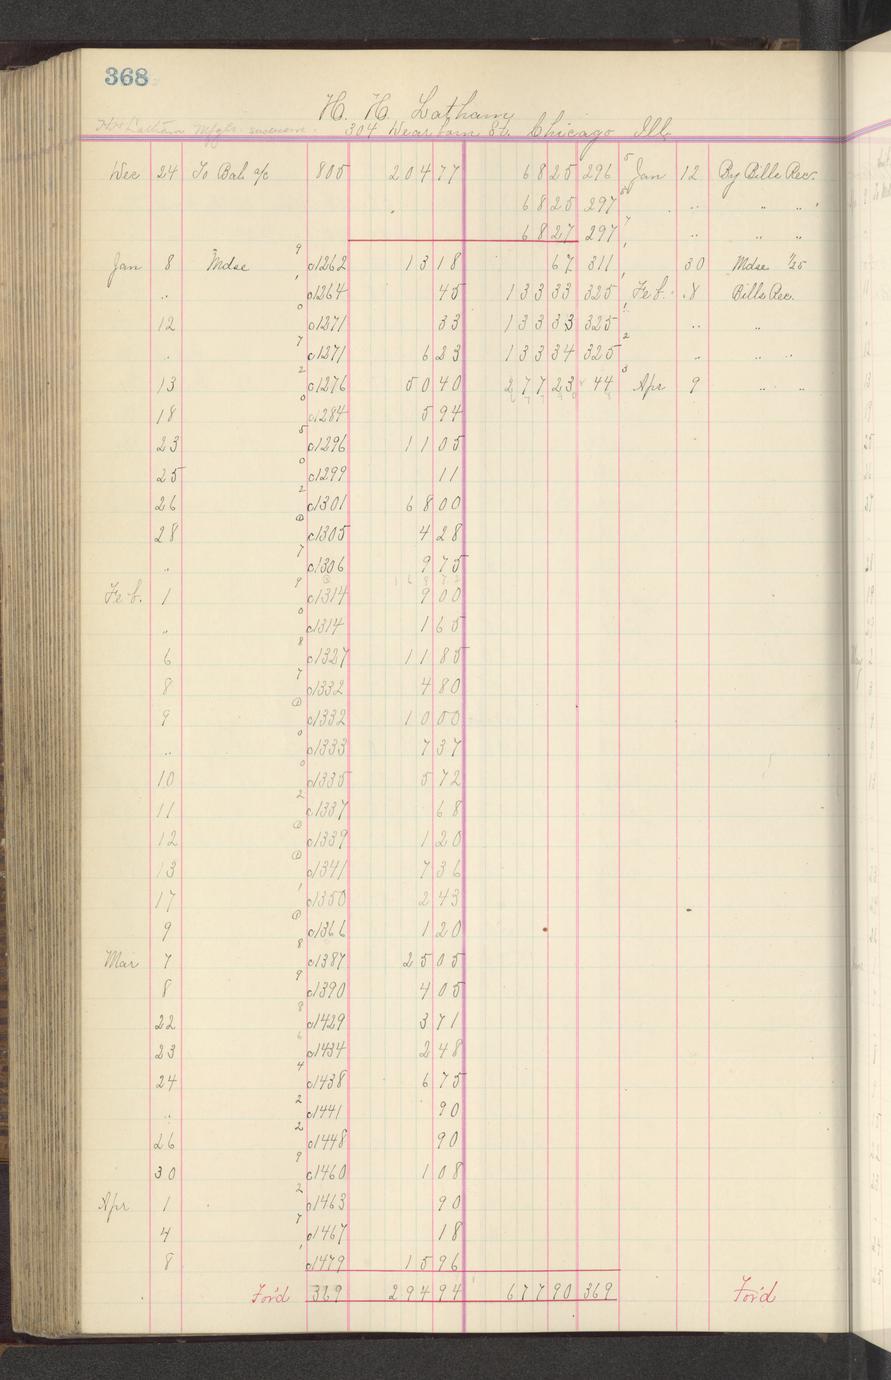 368
H. H. Latham
304 Dearborn St. Chicago Ill.
Dec 24 To Bal a/c 805 204 77 68 25 296 5 Jan 12 By Bills Rec.
68 25 297 " " "
68 27 297 7 " " "
Jan 8 Mdse 9 c1262 13 18 67 311 , 30 Mdse 1/25
" , c1264 45 133 33 325 , Feb. 8 Bills Rec.
12 0 c1271 33 133 33 325 " "
" 7 c1271 6 23 133 34 325 2 " " "
13 2 c1276 50 40 277 23 44 3 Apr 9 " "
18 0 c1284 5 94
23 5 c1296 11 05
25 0 c1299 11
26 2 c1301 68 00
28 c1305 4 28
" 7 c1306 9 75
Feb. 1 9 c1314 9 00
" 0 c1314 1 65
6 8 c1327 11 85
8 7 c1332 4 80
9 c1332 10 00
" 0 c1333 7 37
10 0 c1335 5 72
11 2 c1337 68
12 c1339 1 20
13 c1341 7 36
17 1 c1350 2 43
9 c1366 1 20
Mar 7 8 c1387 25 05
8 9 c1390 4 05
22 8 c1429 3 71
23 6 c1434 2 48
24 4 c1438 6 75
" 2 c1441 90
26 2 c1448 90
30 9 c1460 1 08
Apr 1 2 c1463 90
4 7 c1467 18
8 , c1479 15 96
For'd 369 294 94 677 90 369 For'd